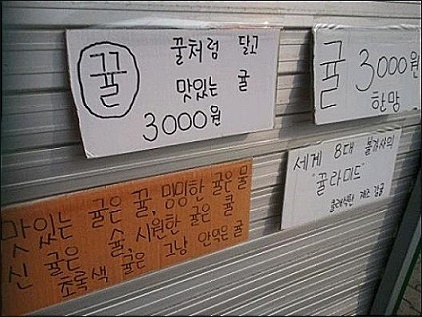 뀰
꿀처럼 달고
맛있는 귤
3000원
귤 3000원
한망
세계 8대 불가사의
"귤라미드"
제주 감귤
맛있는 귤은 꿀, 밍밍한 귤은 물
신 귤은 술, 시원한 귤은 쿨
초록색 귤은 그냥 안익은 귤